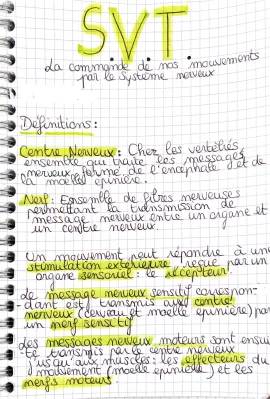 S.V.T.
La commande de nos mouvements
par le système nerveux
Définitions :
Centre Nerveux : Chez les vertébrés,
ensemble qui traite les messages
nerveux, formé de l'encéphale et de
la moelle épinière.
Nerf : Ensemble de fibres nerveuses
permettant la transmission de
message nerveux entre un organe et
un centre nerveux.
Un mouvement peut répondre à une
stimulation extérieure reçue par un
organe sensoriel : le récepteur.
Le message nerveux sensitif correspon-
dant est transmis aux centre
nerveux (cerveau et moelle épinière) par
un nerf sensitif
Les messages nerveux moteurs sont ensui-
te transmis par le centre nerveux
jusqu'aux muscles : les effecteurs du
mouvement (moelle épinière) et les
nerfs moteurs.